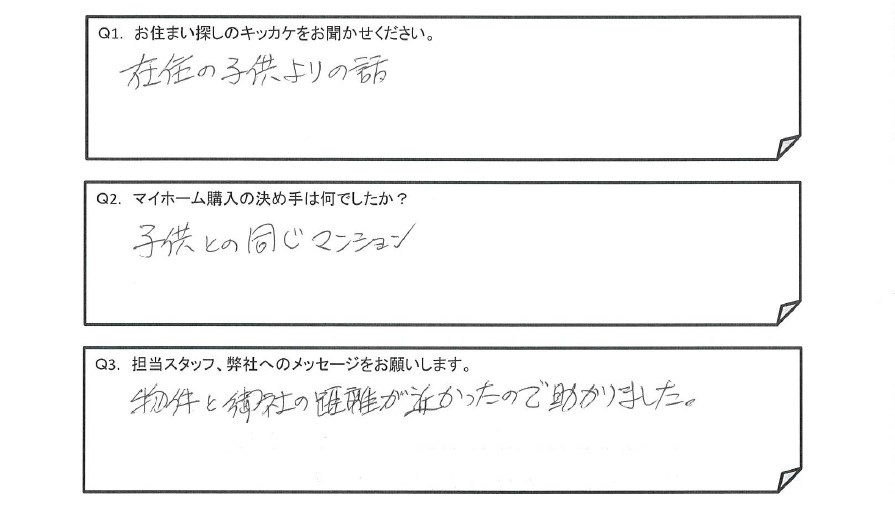 Q1. お住まい探しのキッカケをお聞かせください。
在住の子供よりの話
Q2. マイホーム購入の決め手は何でしたか？
子供との同じマンション
Q3. 担当スタッフ、弊社へのメッセージをお願いします。
物件と御社の距離が近かったので助かりました。